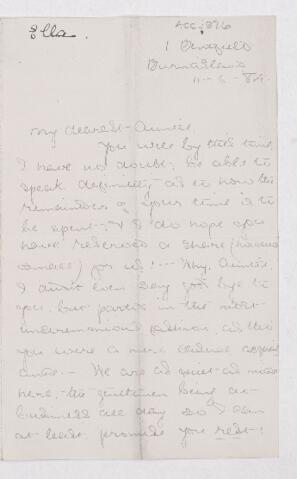 Ella.
ACC: 896
1
Burntisland
11-6-84.
My dearest Annie,
You will by this time,
I have no doubt, be able to
speak definitely as to how the
remainder of your time is to
be spent. & I do hope you
have reserved a share (however
) for us! — Why, Annie,
I didn't even say good bye to
you, but parted in the most
unceremonious fashion, as tho'
you were a mere casual acquaint
ance. — We are as quiet as mice
here, the gentlemen being at
business all day so I can
at least promise you rest!